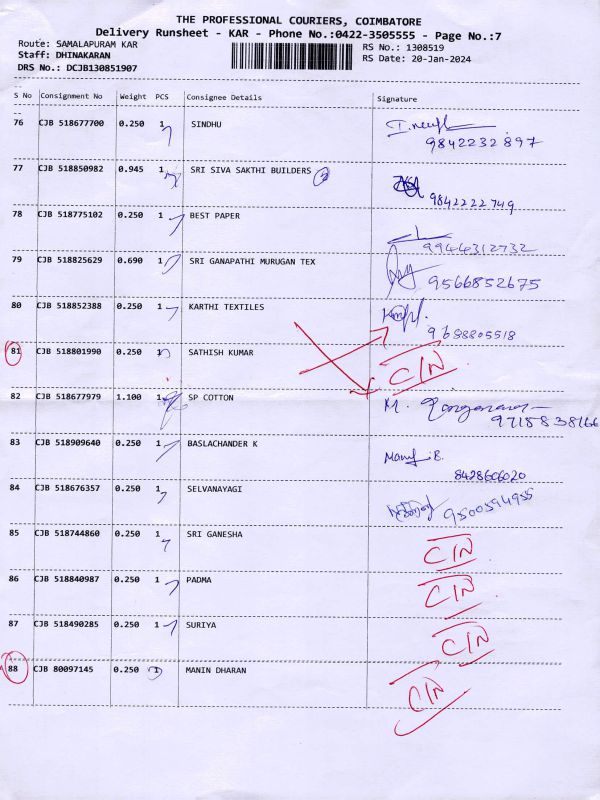 THE PROFESSIONAL COURIERS, COIMBATORE
Delivery Runsheet - KAR - Phone No.:0422-3505555 - Page No.:7
Route: SAMALAPURAM KAR RS No.: 1308519
Staff: DHINAKARAN RS Date: 20-Jan-2024
DRS No.: DCJB130851907
S No Consignment No Weight PCS Consignee Details Signature
76 CJB 518677700 0.250 1 SINDHU
9842232897
77 CJB 518850982 0.945 1 SRI SIVA SAKTHI BUILDERS
9842222749
78 CJB 518775102 0.250 1 BEST PAPER
9944312732
79 CJB 518825629 0.690 1 SRI GANAPATHI MURUGAN TEX
9566852675
80 CJB 518852388 0.250 1 KARTHI TEXTILES
9688805518
81 CJB 518801990 0.250 1 SATHISH KUMAR C/N
82 CJB 518677979 1.100 1 SP COTTON M.
9715838166
83 CJB 518909640 0.250 1 BASLACHANDER K
8428606020
84 CJB 518676357 0.250 1 SELVANAYAGI
9500594955
85 CJB 518744860 0.250 1 SRI GANESHA C/N
86 CJB 518840987 0.250 1 PADMA C/N
87 CJB 518490285 0.250 1 SURIYA C/N
88 CJB 80097145 0.250 1 MANIN DHARAN C/N